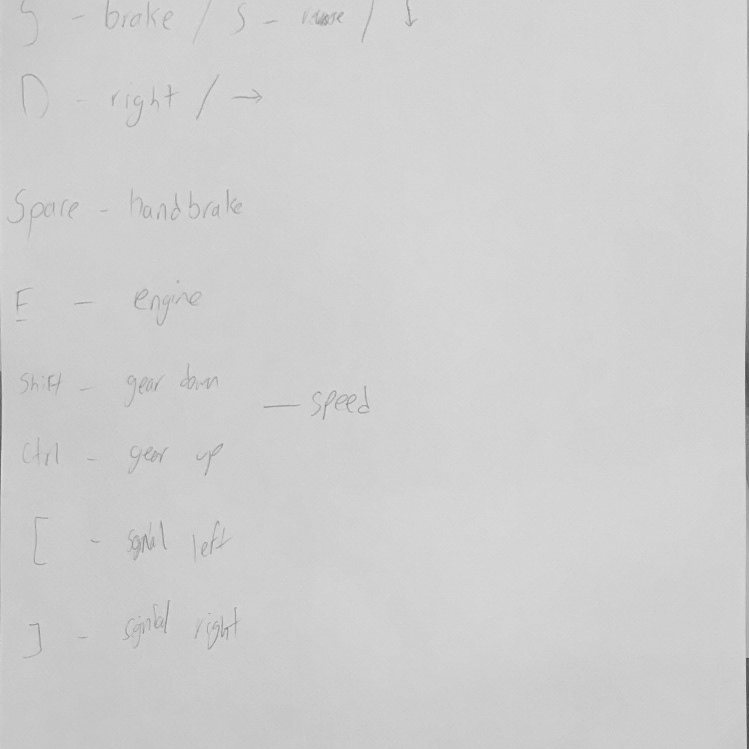 S - brake / S - / ↓
D - right / →
Space - handbrake
E - engine
Shift - gear down
— speed
Ctrl - gear up
[ - signal left
] - signal right